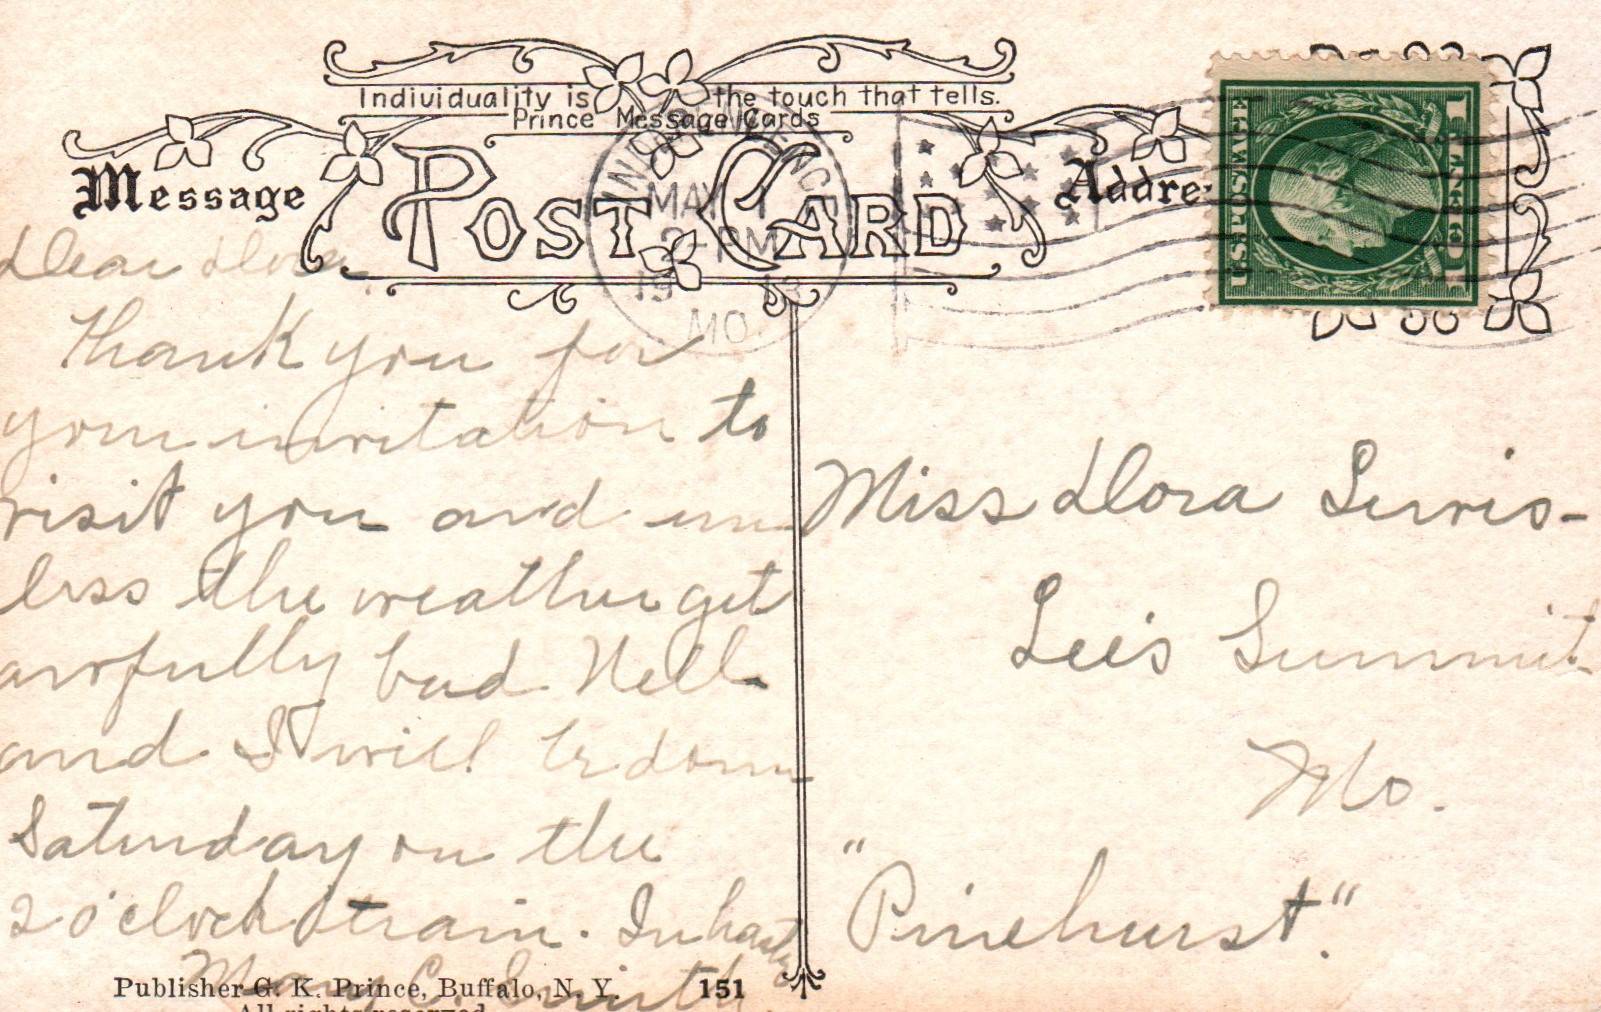 Individuality is the touch that tells.
Prince Message Cards
Message
POST CARD
Addre
U.S. POSTAGE
1 CENT 1
MAY 1
2-PM
19 13
MO.
Dear Dora
Thank you for
your invitation to
visit you and un
less the weather get
awfully bad Nell
and I will be down
Saturday on the
2 o'clock train. In haste
Mary C. Smith
Miss Dora Lewis-
Lee's Summit
Mo.
"Pinehurst."
Publisher G. K. Prince, Buffalo, N. Y. 151
All rights reserved